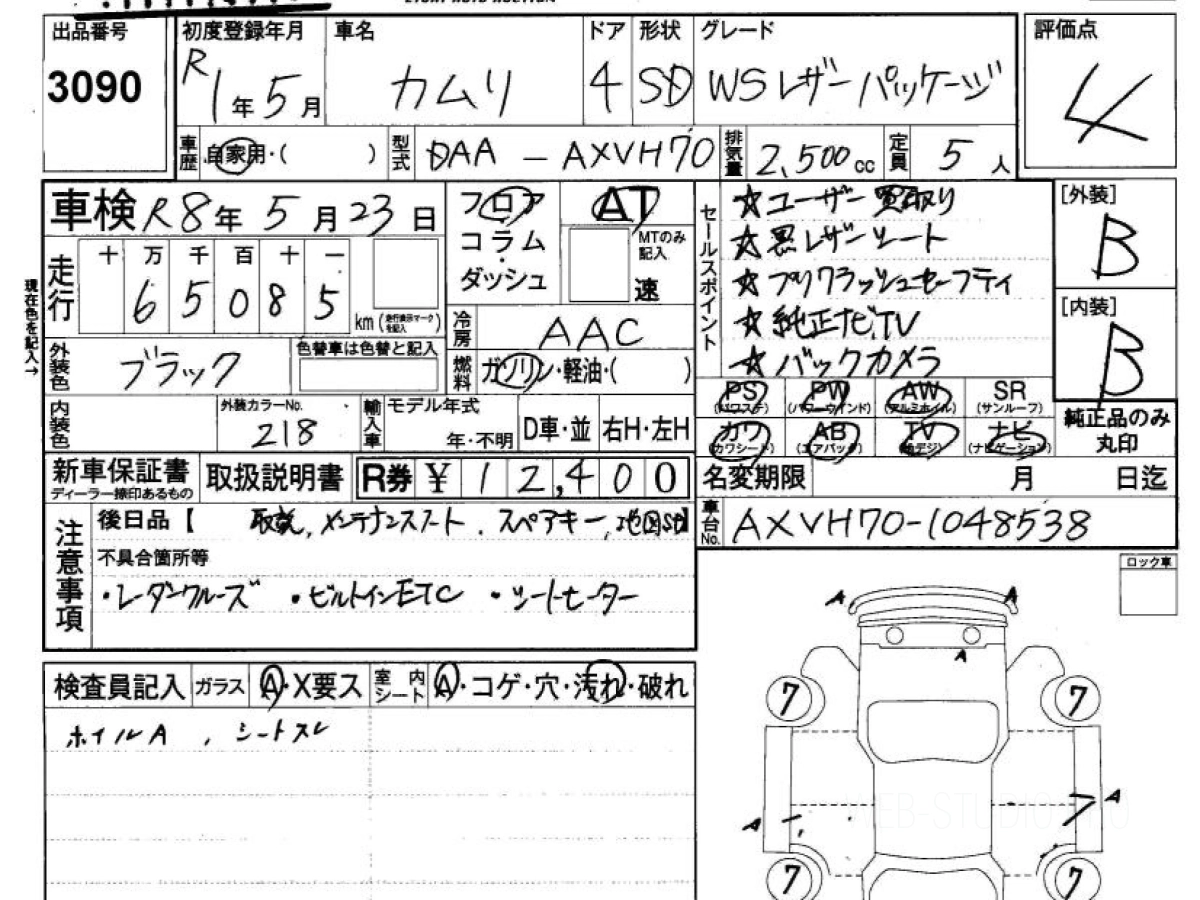 出品番号 初度登録年月 車名 ドア 形状 グレード 評価点
3090 R1年5月 カムリ 4 SD WSレザーパッケージ 4
車歴 自家用・( ) 型式 DAA-AXVH70 排気量 2,500cc 定員 5人
車検 R8年5月23日 フロア AT セールスポイント ☆ユーザー買取り [外装]
コラム MTのみ記入 ☆黒レザーシート B
走行 十 万 千 百 十 一 ダッシュ 速 ☆プリクラッシュセーフティ
6 5 0 8 5 km(走行表示マークを記入) ☆純正ナビ,TV [内装]
現在色を記入→
冷房 AAC ☆バックカメラ B
外装色 ブラック 色替車は色替と記入 燃料 ガソリン・軽油・( )
PS (パワステ) PW (パワーウインド) AW (アルミホイル) SR (サンルーフ) 純正品のみ丸印
内装色 外装カラーNo. 218 輸入車 モデル年式 年・不明 D車・並 右H・左H
カワ (カワシート) AB (エアバッグ) TV (地デジ) ナビ (ナビゲーション)
新車保証書 ディーラー捺印あるもの 取扱説明書 R券 ¥12,400 名変期限 月 日迄
注意事項 後日品【 取説,メンテナンスノート,スペアキー, 】 車台No. AXVH70-1048538
不具合箇所等 ロック車
・レーダークルーズ ・ビルトインETC ・シートヒーター
A A
A
検査員記入 ガラス A・X要ス 室内シート A・コゲ・穴・汚れ・破れ
7 7
ホイルA , シートスレ
WEB-STUDIO PRO
A A
7 7